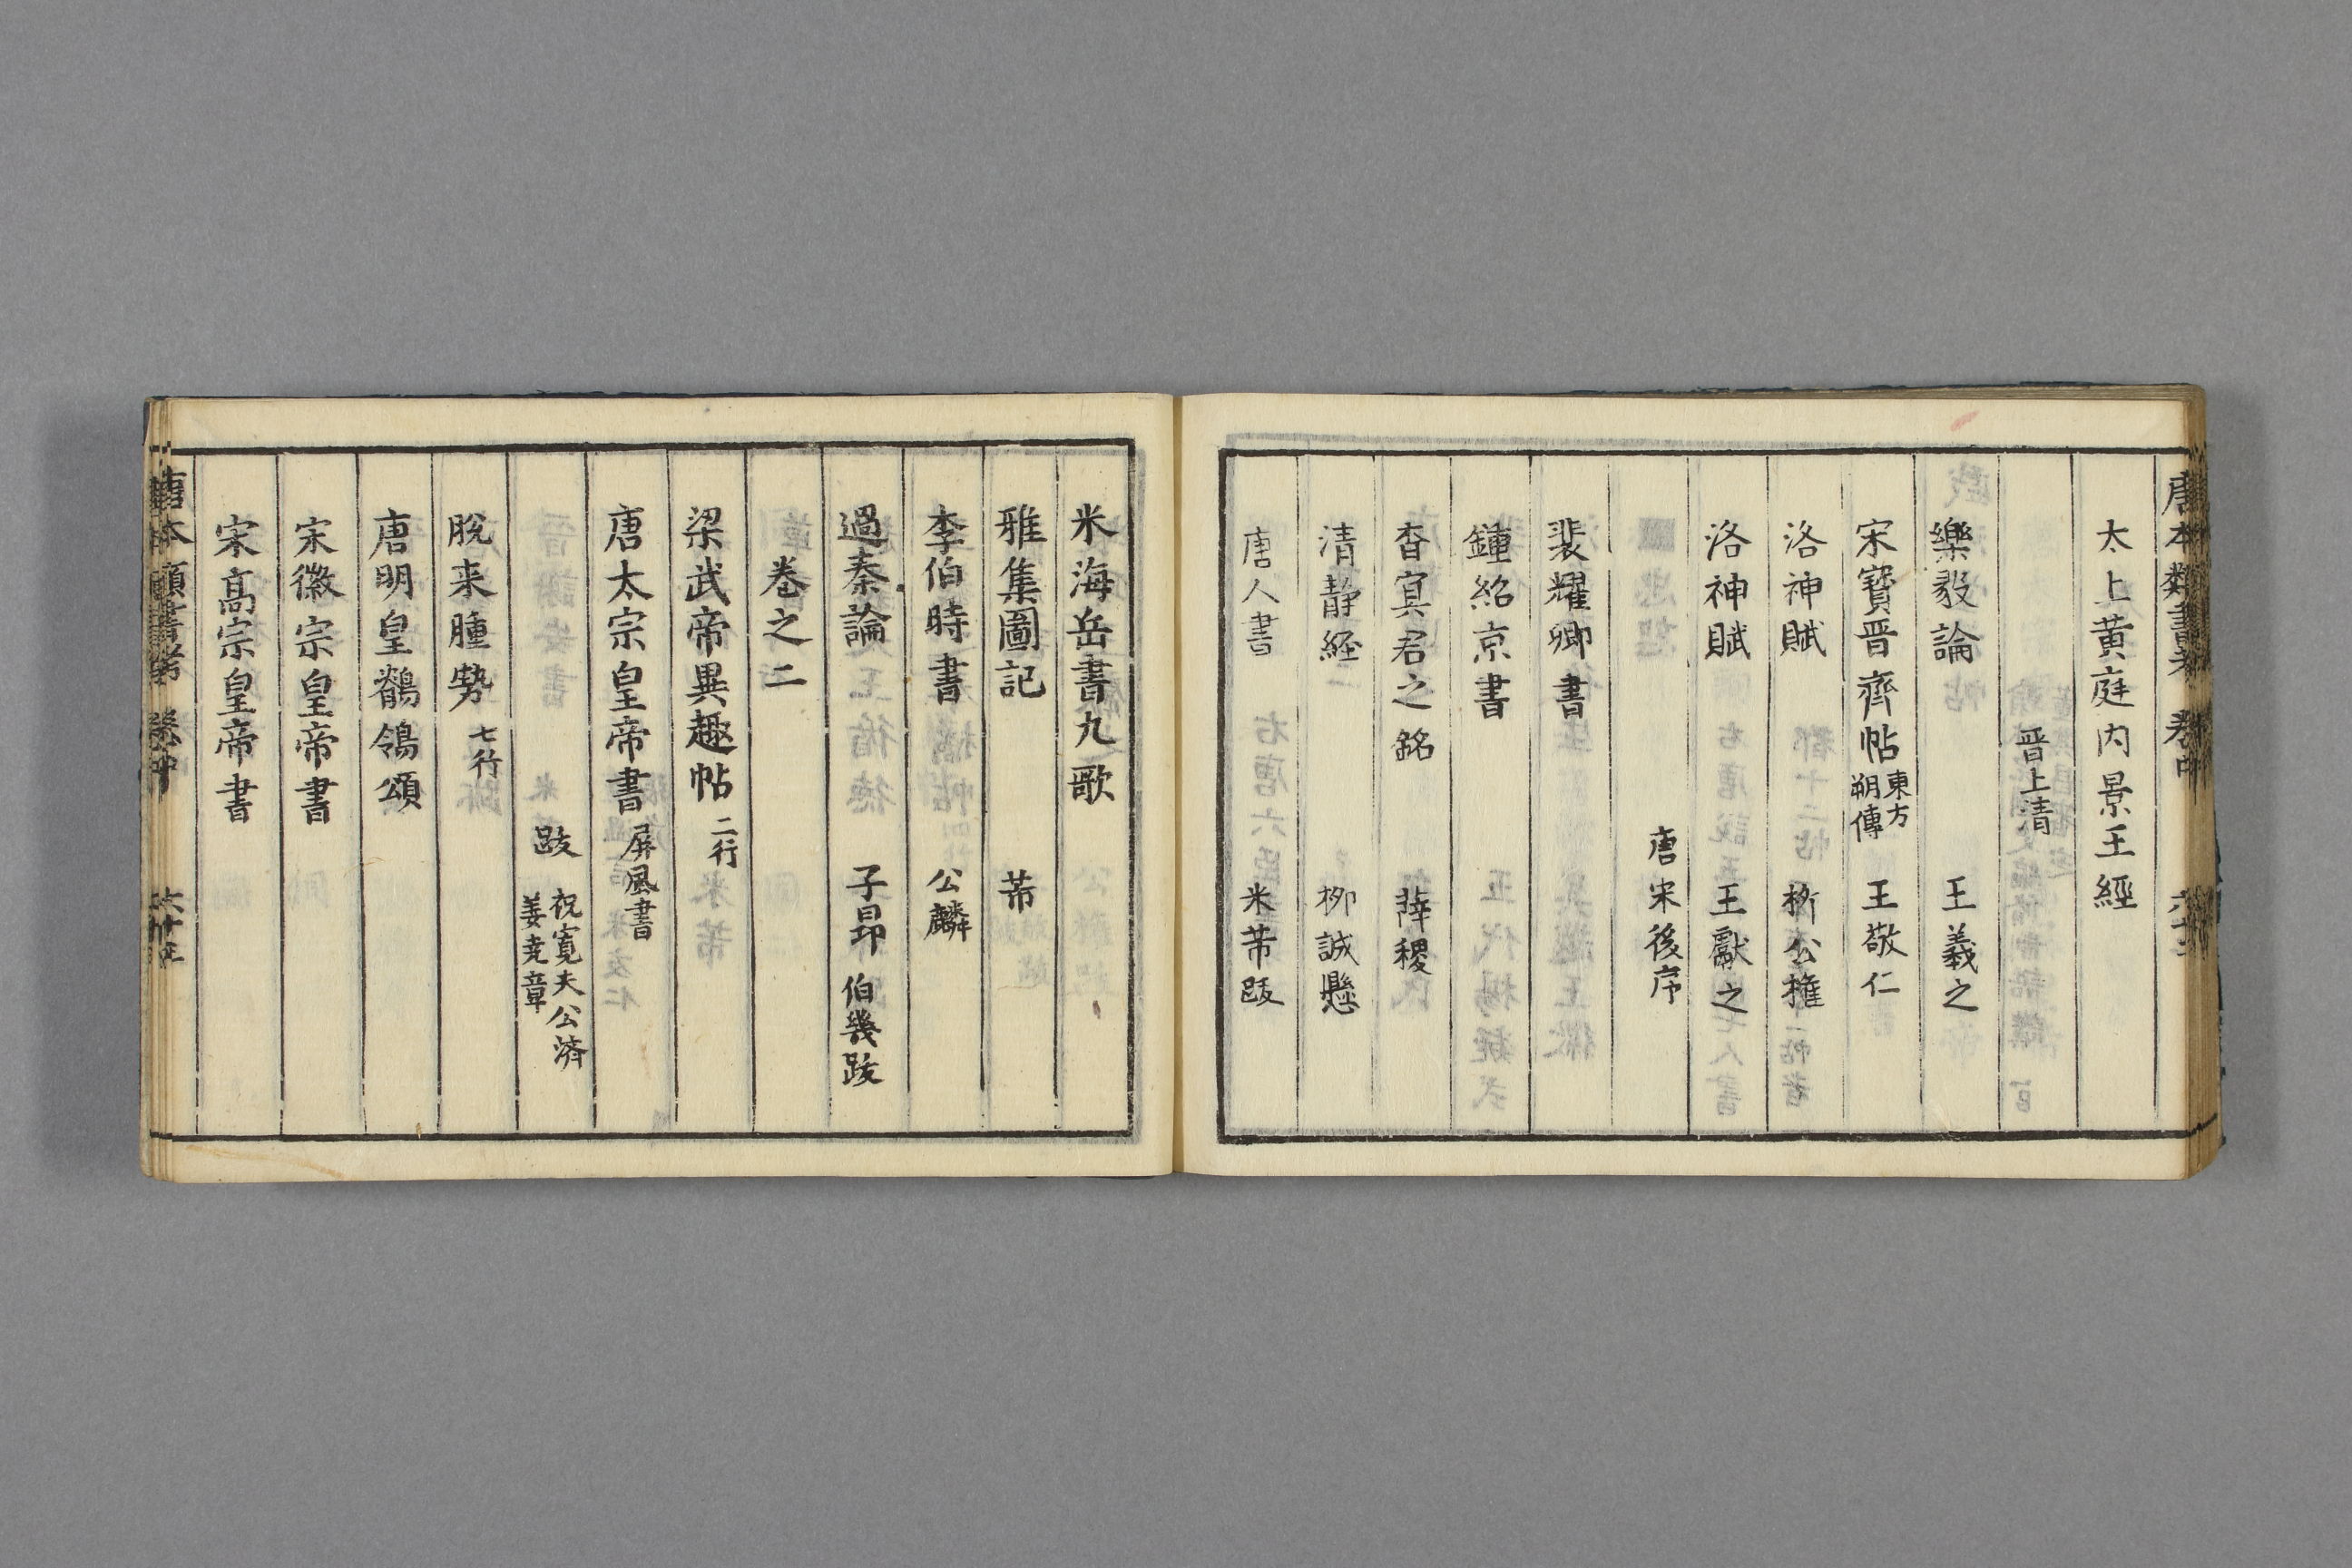 唐本類書考 巻中
太上黄庭内景王經
晋上清
樂毅論 王羲之
宋寶晋齊帖 東方朔傳 王敬仁
洛神賦 柳公權
洛神賦 王獻之
唐宋後序
裴耀卿書
鍾紹京書
杳冥君之銘 薛稷
清静経 柳誠懸
唐人書 米芾跋
米海岳書九歌
雅集圖記 芾
李伯時書 公麟
過秦論 子昂 伯幾跋
巻之二
梁武帝異趣帖 二行
唐太宗皇帝書 屏風書
跋 祝寛夫公濟 姜尭章
脱来腫㔟 七行
唐明皇鶺鴒頌
宋徽宗皇帝書
宋高宗皇帝書
唐本類書考 巻中